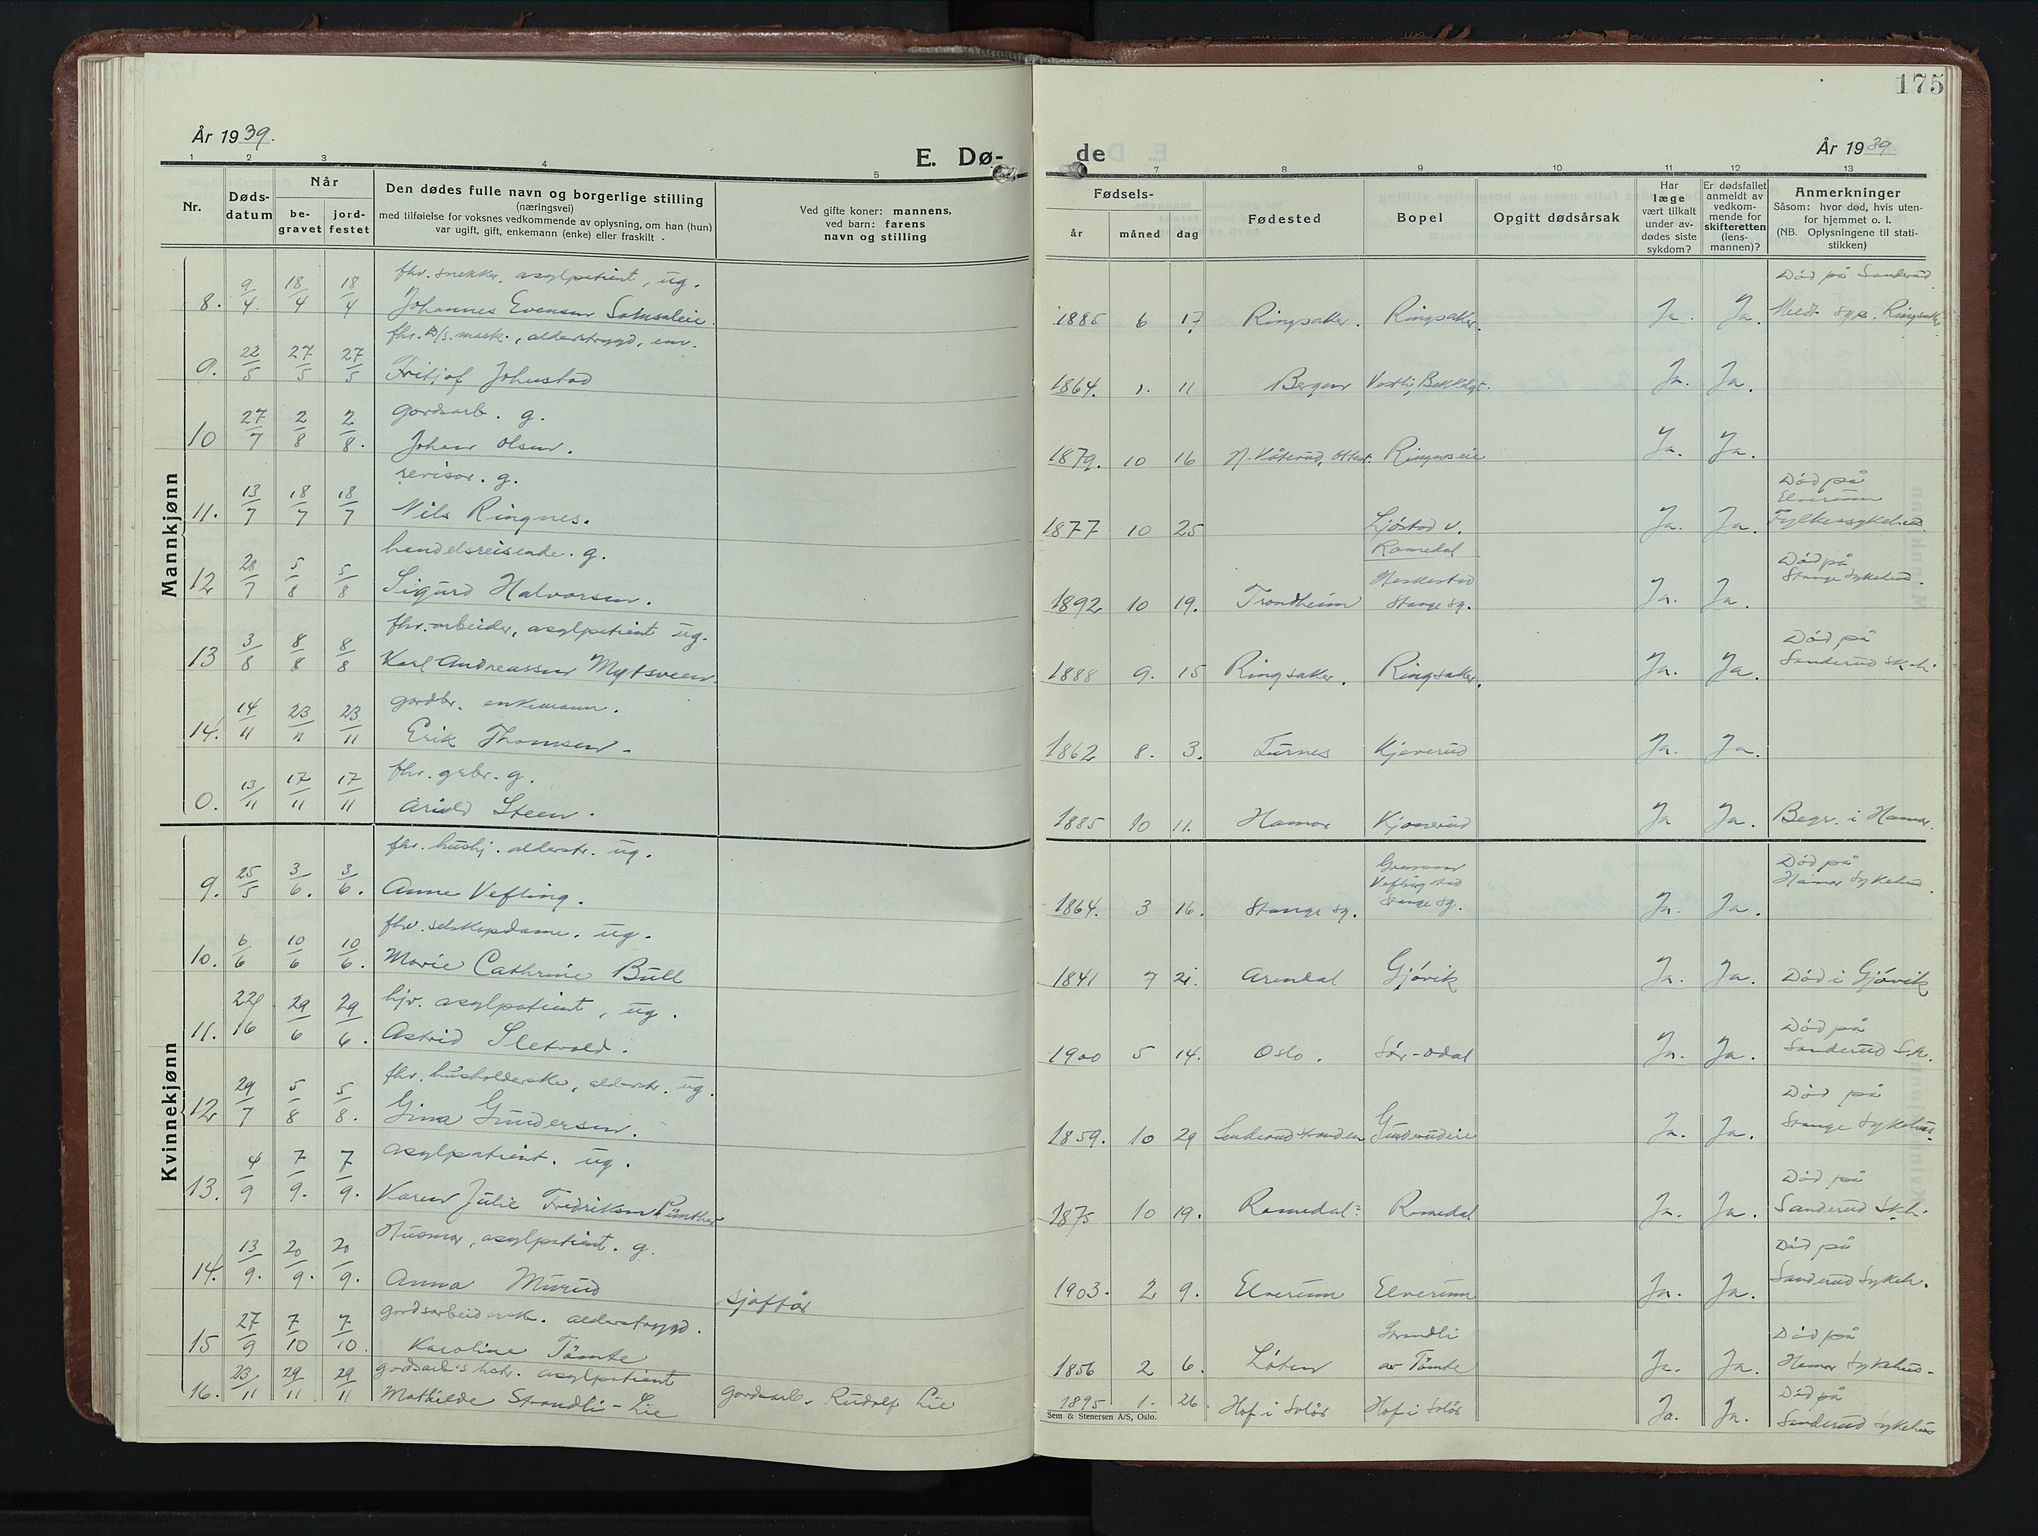 175
År 1939.
E. Dø-
de
År 1939
1 2 3 4 5 7 8 9 10 11 12 13
Nr.
Døds-
datum
Når
be-
gravet
jord-
festet
Den dødes fulle navn og borgerlige stilling
(næringsvei)
med tilføielse for voksnes vedkommende av oplysning, om han (hun)
var ugift, gift, enkemann (enke) eller fraskilt
Ved gifte koner: mannens,
ved barn: farens
navn og stilling
Fødsels-
år måned dag
Fødested
Bopel
Opgitt dødsårsak
Har
læge
vært tilkalt
under av-
dødes siste
sykdom?
Er dødsfallet
anmeldt av
vedkom-
mende for
skifteretten
(lens-
mannen)?
Anmerkninger
Såsom: hvor død, hvis uten-
for hjemmet o. l.
(NB. Oplysningene til stati-
stikken)
Mannkjønn
fhv. snekker, asylpatient, ug. Død på Sanderud
8. 9/4. 18/4 18/4 Johannes Evensen 1885 6 17 Ringsaker. Ringsaker. Ja. Ja. Ringsaker
fhv. mask., alderstrygd, em.
9. 22/5 27/5 27/5 Fritjof Johnstad 1864. 1. 11 Bergen Ja. Ja.
gårdsarb. g.
10 27/7 2/8 2/8. Johan Olsen. 1879. 10 16 Ringneseie Ja. Ja.
revisor. g. Død på Elverum
11. 13/7 18/7 18/7 Nils Ringnes. 1877 10 25 Ljøstad v. Romedal Ja. Ja. Fylkessykehus
handelsreisende. g. Død på
12 28/7 5/8 5/8 Sigurd Halvorsen. 1892 10 19. Trondheim Stange sg. Ja. Ja. Stange Sykehus.
fhv. arbeider, asylpatient ug. Død på
13 3/8 8/8 8/8 Karl Andreassen Mytsveen 1888 9. 15 Ringsaker. Ringsaker. Ja. Ja. Sanderud sk.h.
gårdbr. enkemann.
14. 14/11 23/11 23/11 Erik Thomsen. 1862 8. 3. Furnes Kjonerud Ja. Ja.
fhv. grbr. g.
0. 13/11 17/11 17/11 Arild Steen. 1885 10 11. Hamar Kjonerud Ja Ja. Begr. i Hamar.
Kvinnekjønn
fhv. hushj. alderstr. ug. Død på
9. 25/5 3/6. 3/6. Anne Vefling. 1864. 3 16. Stange sg. Stange sg. Ja. Ja. Hamar Sykehus.
fhv. selskapsdame. ug.
10. 6/6 10/6 10/6. Marie Cathrine Bull 1841 7 21. Arendal Gjøvik Ja. Ja. Død i Gjøvik
hjv. asylpatient, ug. Død på
11. 22/6 29/6 29/6. Astrid Sletvold. 1900 5 14. Oslo. Sør-Odal Ja. Ja. Sanderud S.k.
fhv. husholderske, alderstr. ug. Død på
12 29/7 5/8 5/8. Gina Gundersen. 1859. 10 29 Gunderudeie Ja. Ja. Stange Sykehus.
asylpatient. ug. Død på
13. 4/9 7/9. 7/9. Karen Julie Fredriksen Günther 1875 10 19. Romedal? Romedal Ja. Ja. Sanderud Sk.h.
Husmor, asylpatient. g. Død på
14. 13/9. 20/9. 20/9. Anna Murud sjåfør 1903. 2 9. Elverum Elverum Ja. Ja. Sanderud Sykeh.
gårdsarbeiderske. alderstrygd. Død på
15 27/9 7/10 7/10. Karoline Tømte 1856 2 6. Løten Strandli av Tømte Ja. Ja. Hamar Sykehus.
gårdsarb's hstr. asylpatient Død på
16. 23/11 29/11 29/11 Mathilde Strandli-Lie gårdsarb. Rudolf Lie 1895 1. 26. Hof i Solør Hof i Solør Ja. Ja. Sanderud Sykehus
Sem & Stenersen A/S, Oslo.